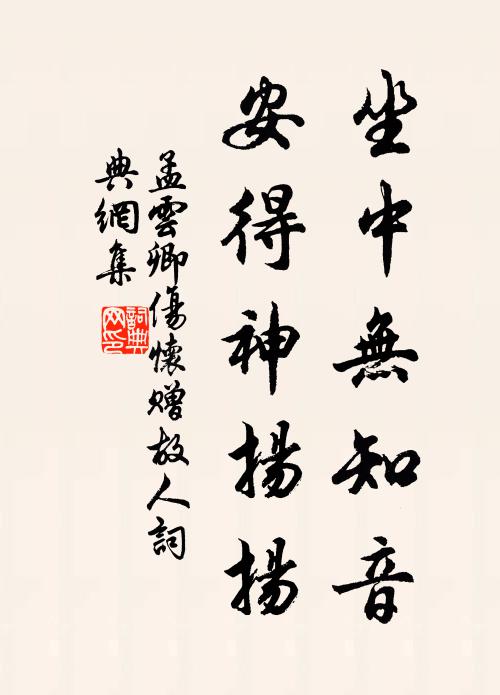 坐中無知音
安得神揚揚
孟雲卿傷懷贈故人詞
典網集
詞典
网印